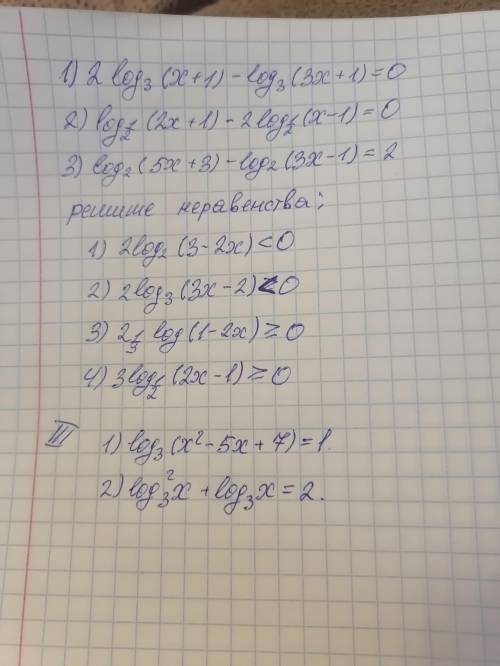 1) 2 log₃ (x+1) - log₃ (3x+1) = 0
2) log½ (2x+1) - 2 log½ (x-1) = 0
3) log₂ (5x+3) - log₂ (3x-1) = 2
решите неравенства:
1) 2log₂ (3-2x) < 0
2) 2log₃ (3x-2) < 0
3) 2⅓ log (1-2x) ≥ 0
4) 3log½ (2x-1) ≥ 0
III 1) log₃ (x² - 5x + 7) = 1.
2) log₃²x + log₃x = 2.